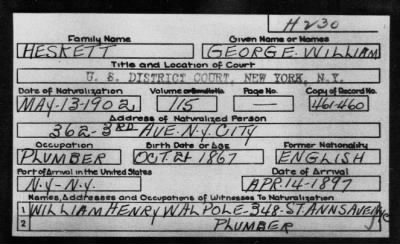 H 230
Family Name Given Name or Names
HESKETT GEORGE WILLIAM
Title and Location of Court
U. S. DISTRICT COURT, NEW YORK, N.Y.
Date of Naturalization Volume or Bundle No. Page No. Copy of Record No.
MAY-13-1902 115 — 461-460
Address of Naturalized Person
362-3RD AVE. N.Y. CITY
Occupation Birth Date or Age Former Nationality
PLUMBER OCT. 21 1867 ENGLISH
Port of Arrival in the United States Date of Arrival
N.Y.-N.Y. APR. 14-1897
Names, Addresses and Occupations of Witnesses To Naturalization
1 WILLIAM HENRY WALPOLE-348-ST ANNS AVE NYC
2 PLUMBER